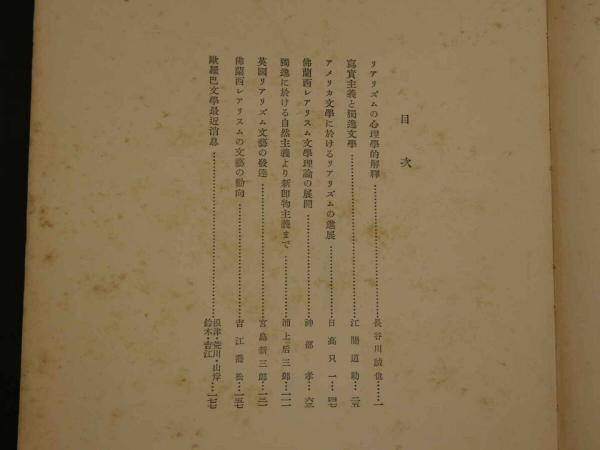 目次
リアリズムの心理學的解釋……長谷川誠也……一
寫實主義と獨逸文學……江間道助……二五
アメリカ文學に於けるリアリズムの進展……日高只一……四七
佛蘭西レアリスム文學理論の展開……神部孝……六三
獨逸に於ける自然主義より新卽物主義まで……浦上后三郎……一一一
英國リアリズム文藝の發達……宮島新三郎……一三一
佛蘭西レアリスムの文藝の動向……吉江喬松……一五七
歐羅巴文學最近消息……根津・菱川・山岸・鈴木・吉江……一七七